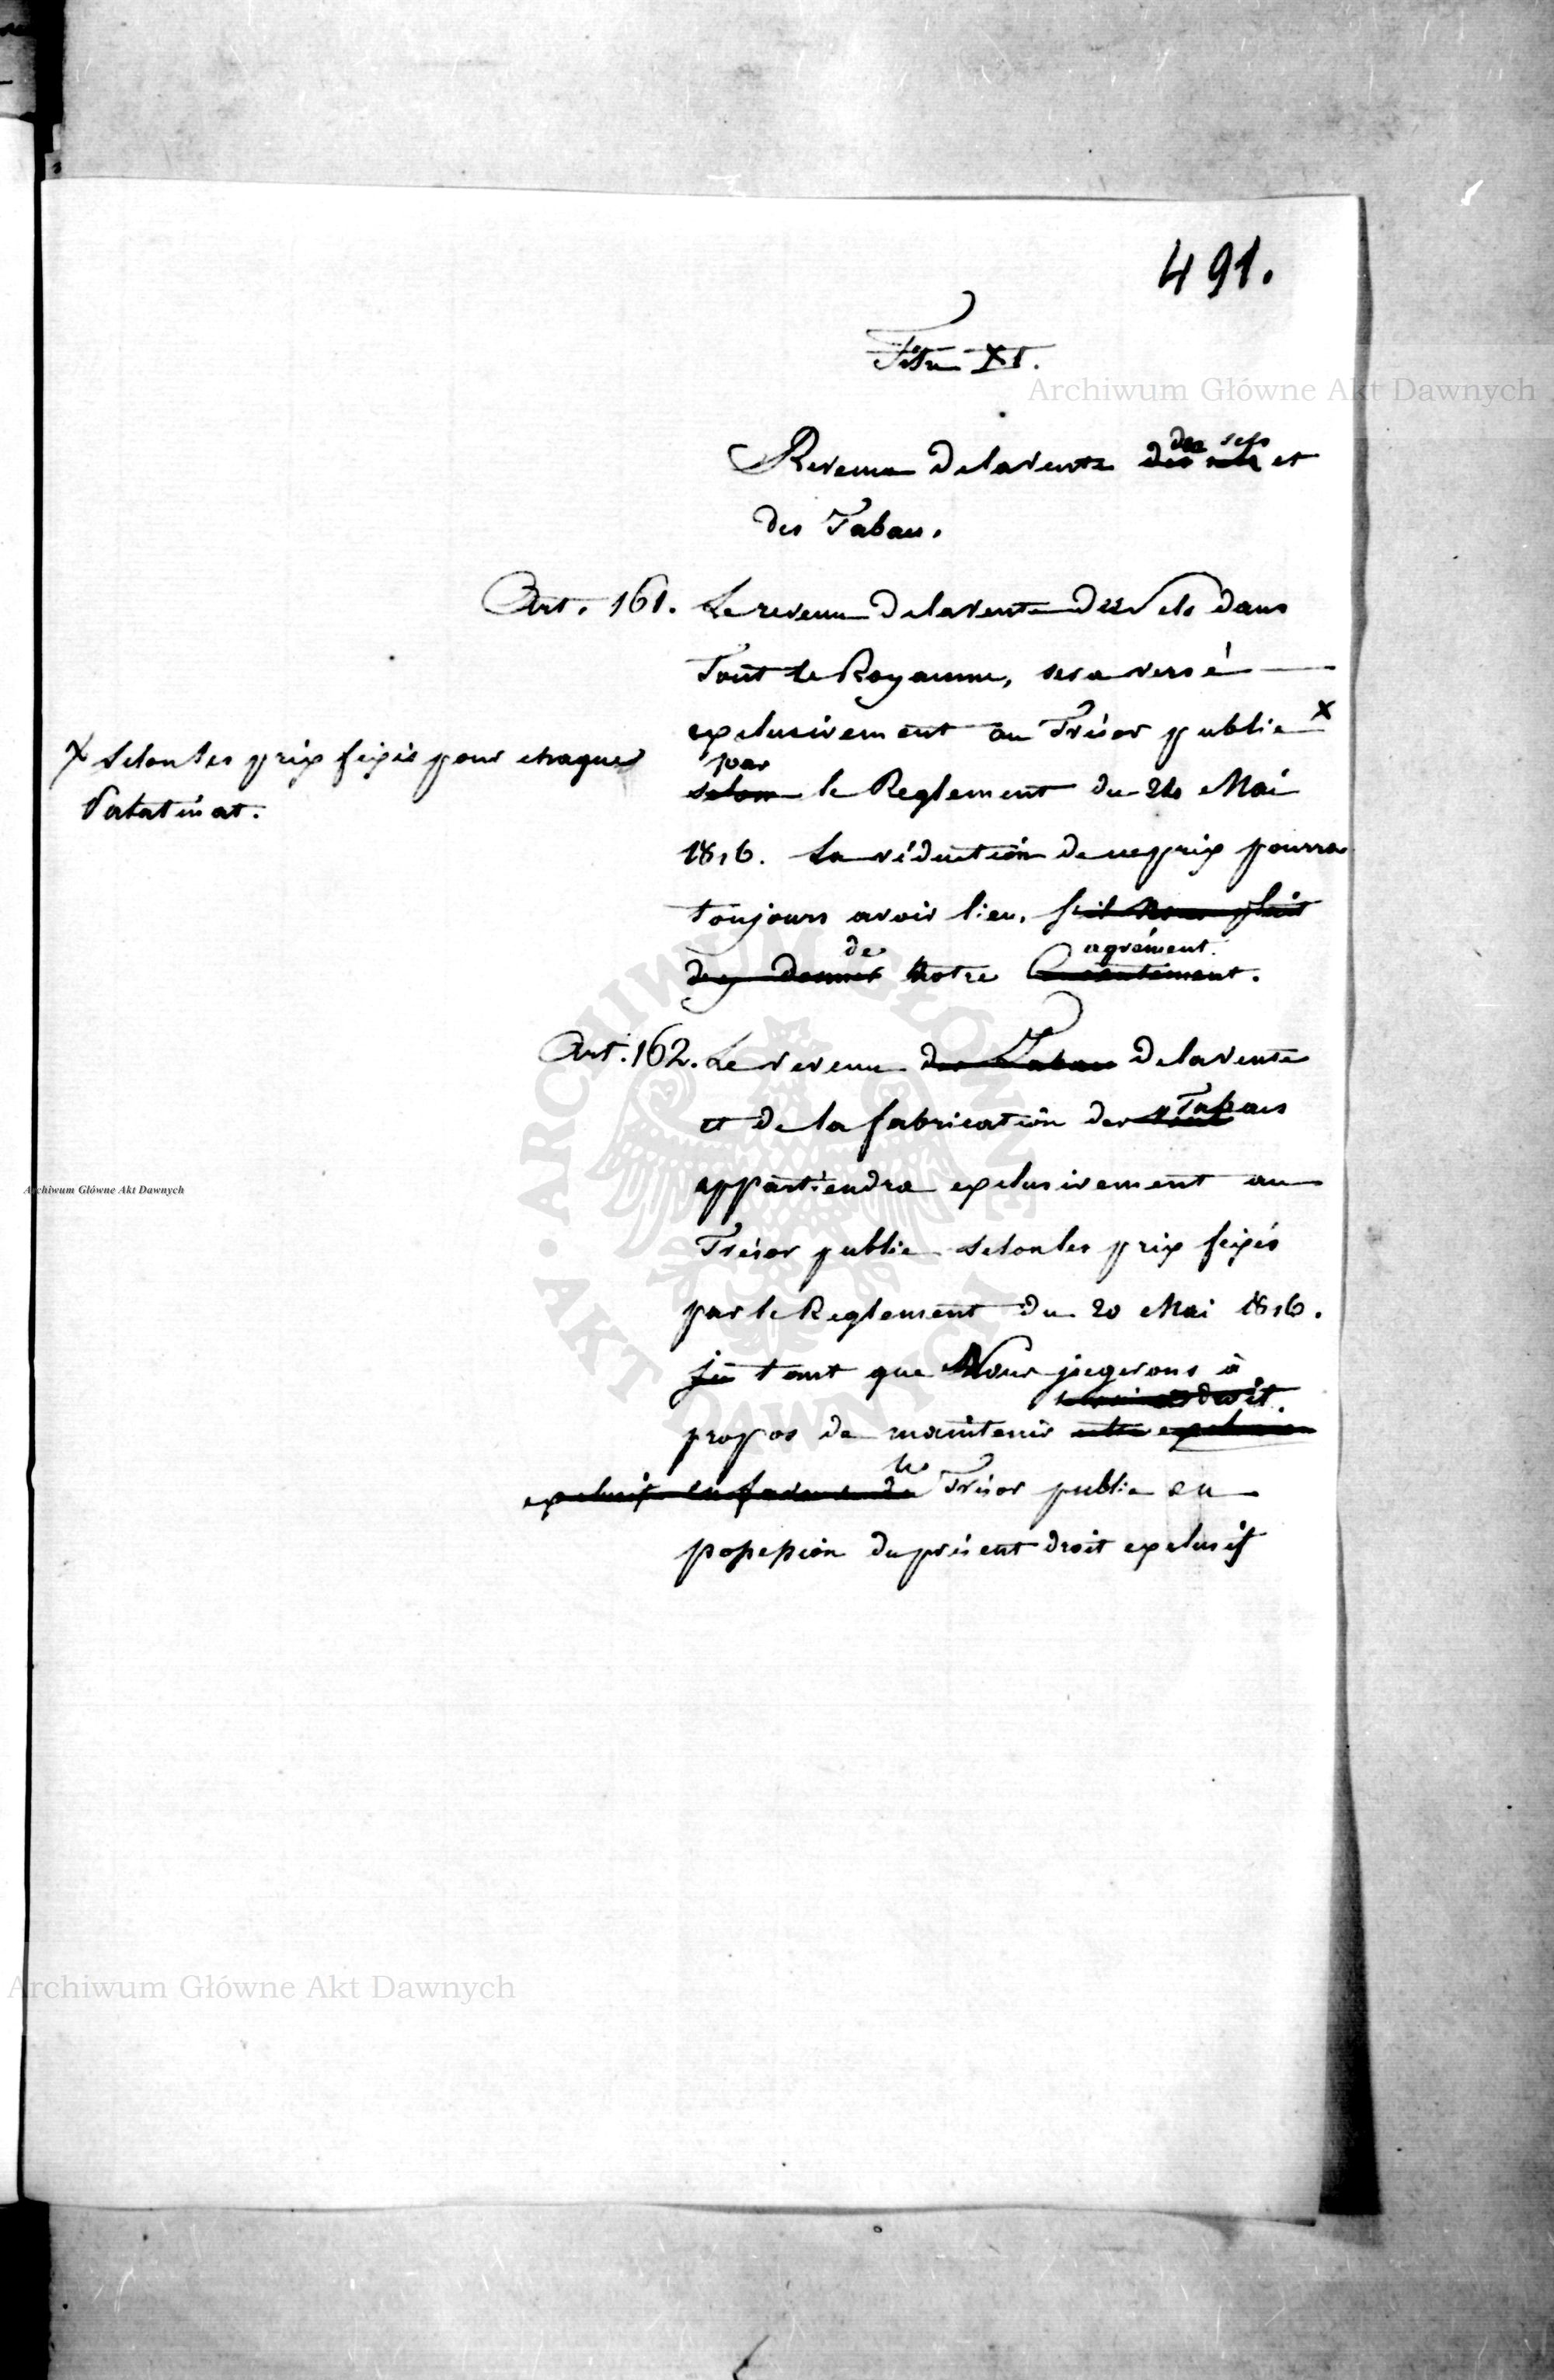 491.
Titre XI.
des sels
Revenu de la vente des sels et
des Tabacs.
Art. 161. Le revenu de la vente des sels dans
Tout le Royaume, sera versé
exclusivement au Trésor public x
x selon les prix fixés pour chaque
Palatinat.
par
selon le Reglement du 24 Mai
1816. La réduction de ce prix pourra
toujours avoir lieu, s'il Nous plait
de agrément.
d'y donner notre Consentement.
Art. 162. Le revenu des Tabacs de la vente
et de la fabrication des Tabacs
appartiendra exclusivement au
Trésor public selon les prix fixés
par le Reglement du 20 Mai 1816.
tant que Nous jugerons à
droit.
propos de maintenir cette
le
exclusif en faveur du Trésor public en
possession du présent droit exclusif
Archiwum Główne Akt Dawnych
Archiwum Główne Akt Dawnych
Archiwum Główne Akt Dawnych
ARCHIWUM GŁÓWNE · AKT DAWNYCH